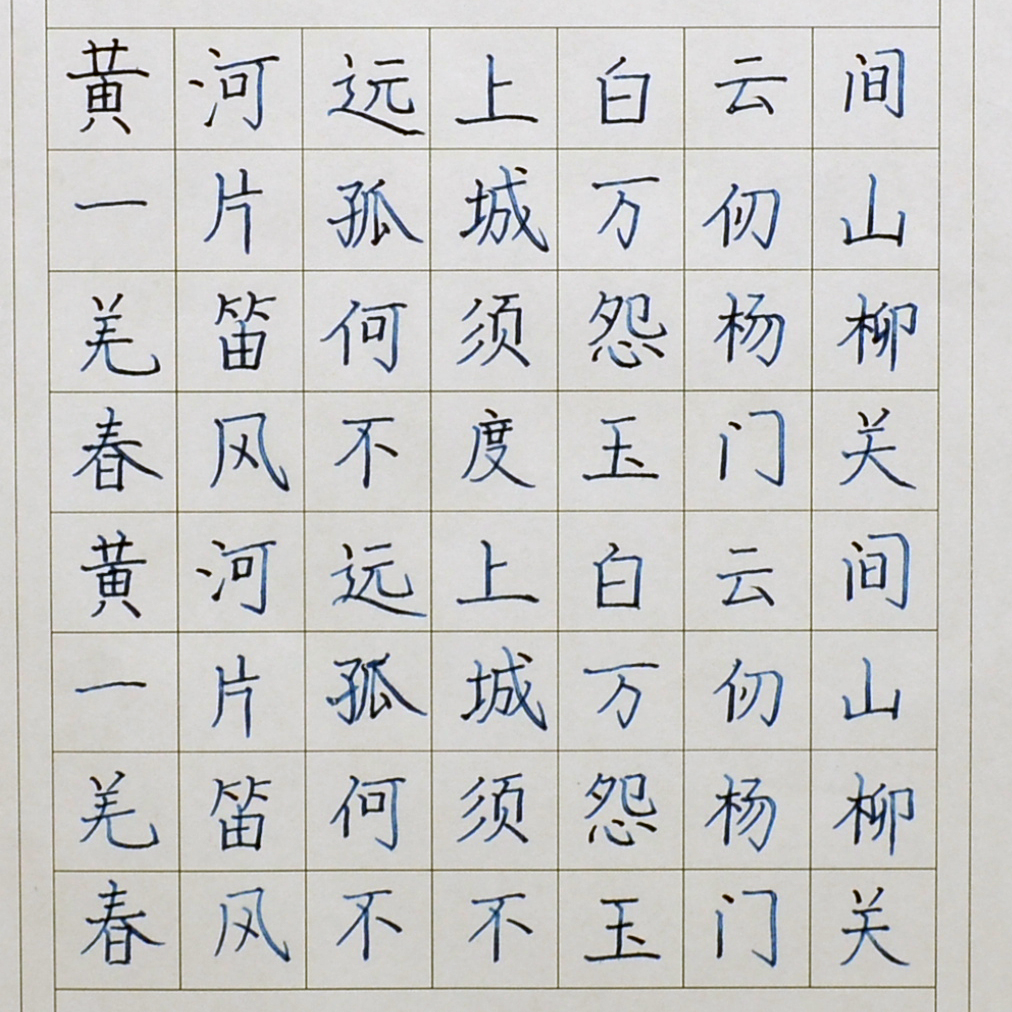 黄河远上白云间
一片孤城万仞山
羌笛何须怨杨柳
春风不度玉门关
黄河远上白云间
一片孤城万仞山
羌笛何须怨杨柳
春风不不玉门关